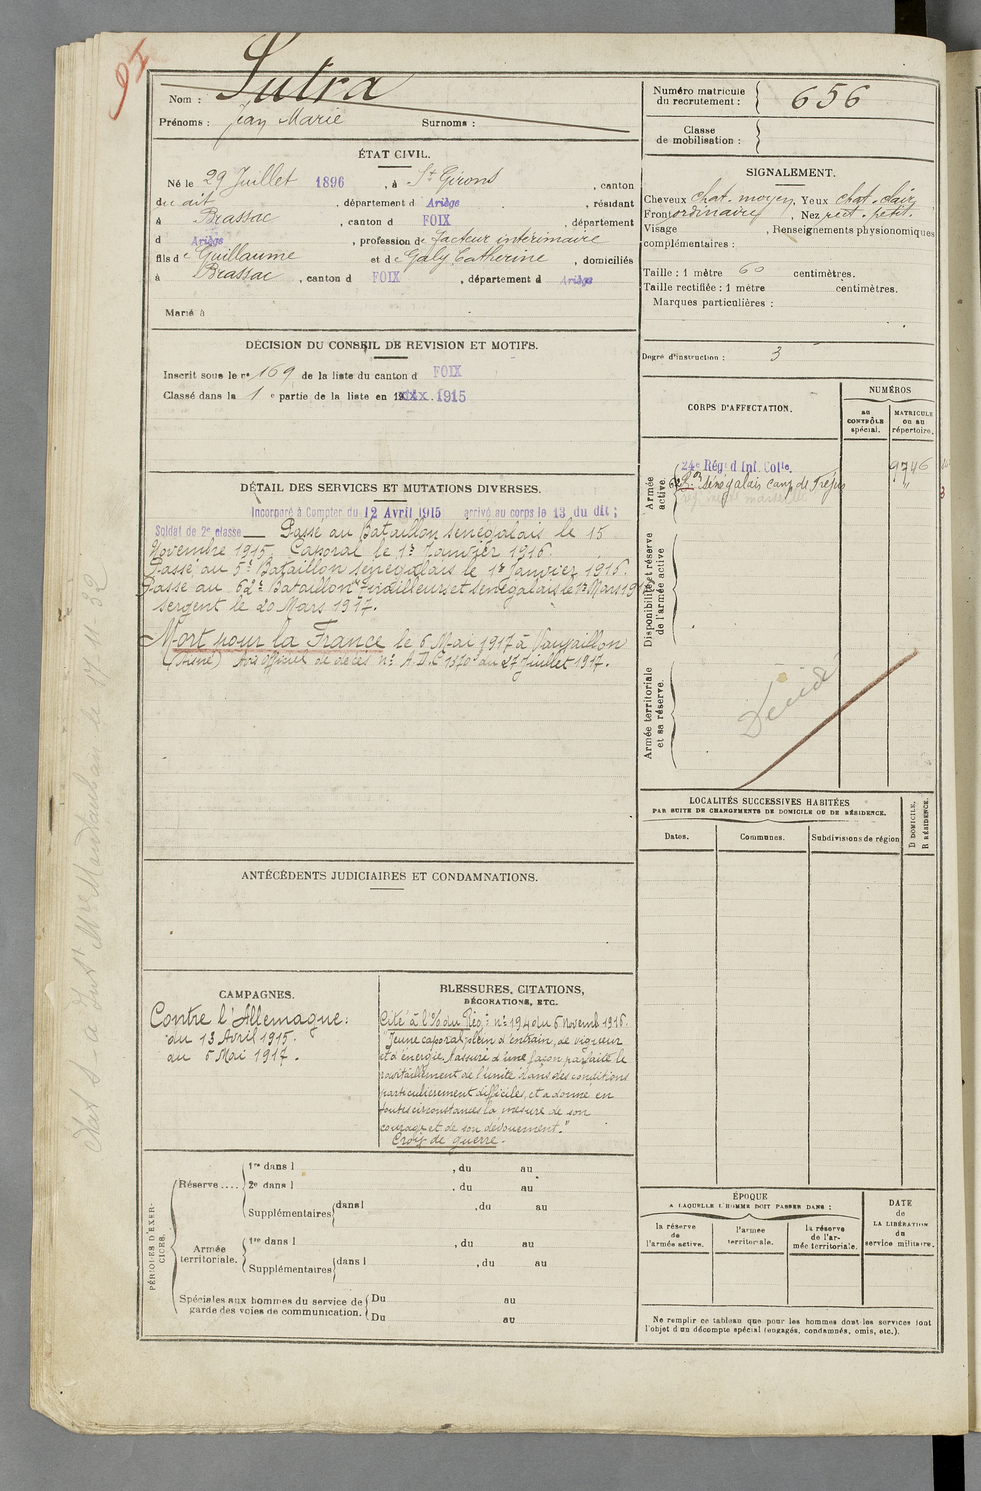 91
Nom : Sutra
Prénoms : Jean Marie Surnoms :
Numéro matricule du recrutement : 656
Classe de mobilisation :
ÉTAT CIVIL.
Né le 29 Juillet 1896, à St Girons, canton
du dit, département d Ariège, résidant
à Brassac, canton d FOIX, département
d Ariège, profession de facteur intérimaire
fils de Guillaume et de Galy Catherine, domiciliés
à Brassac, canton d FOIX, département d Ariège
Marié à
SIGNALEMENT.
Cheveux chat. moyen, Yeux chat. clair
Front ordinaire, Nez rect. petit.
Visage , Renseignements physionomiques
complémentaires :
Taille : 1 mètre 60 centimètres.
Taille rectifiée : 1 mètre centimètres.
Marques particulières :
Degré d'instruction : 3
DÉCISION DU CONSEIL DE REVISION ET MOTIFS.
Inscrit sous le n° 169 de la liste du canton d FOIX
Classé dans la 1 e partie de la liste en 19 1915
CORPS D'AFFECTATION.
NUMÉROS
au CONTRÔLE spécial.
MATRICULE ou au répertoire.
Armée active.
24e Régt d Inf. Colle. 9746
62e Bon sénégalais camp de Fréjus "
Disponibilité et réserve de l'armée active
Armée territoriale et sa réserve.
Décédé
DÉTAIL DES SERVICES ET MUTATIONS DIVERSES.
Incorporé à Compter du 12 Avril 1915 arrivé au corps le 13 du dit ;
Soldat de 2e classe Passé au Bataillon sénégalais le 15
Novembre 1915. Caporal le 1er Janvier 1916.
Passé au 5e Bataillon sénégalais le 1er Janvier 1916.
Passé au 62e Bataillon Tirailleurs et sénégalais le 1er Mars 19
sergent le 20 Mars 1917.
Mort pour la France le 6 Mai 1917 à Vauxaillon
(Aisne) Avis officiel de décès n° A.D.C 1320 du 27 Juillet 1917.
LOCALITÉS SUCCESSIVES HABITÉES
PAR SUITE DE CHANGEMENTS DE DOMICILE OU DE RÉSIDENCE.
Dates. Communes. Subdivisions de région
D DOMICILE.
R RÉSIDENCE.
ANTÉCÉDENTS JUDICIAIRES ET CONDAMNATIONS.
CAMPAGNES.
Contre l'Allemagne :
du 13 Avril 1915.
au 6 Mai 1917.
BLESSURES, CITATIONS,
DÉCORATIONS, ETC.
Cité à l'O/ du Rég.t n° 194 du 6 Novemb 1916.
"Jeune caporal plein d'entrain, de vigueur
et d'énergie. A assuré d'une façon parfaite le
ravitaillement de l'unité dans des conditions
particulièrement difficiles, et a donné en
toutes circonstances la mesure de son
courage et de son dévouement."
Croix de guerre.
PÉRIODES D'EXERCICES.
Réserve ....
1re dans l , du au
2e dans l , du au
Supplémentaires dans l , du au
Armée territoriale.
1re dans l , du au
Supplémentaires dans l , du au
Spéciales aux hommes du service de garde des voies de communication.
Du au
Du au
ÉPOQUE
A LAQUELLE L'HOMME DOIT PASSER DANS :
la réserve de l'armée active.
l'armée territoriale.
la réserve de l'armée territoriale.
DATE
de
LA LIBÉRATION
du
service militaire.
Ne remplir ce tableau que pour les hommes dont les services font
l'objet d'un décompte spécial (engagés, condamnés, omis, etc.).